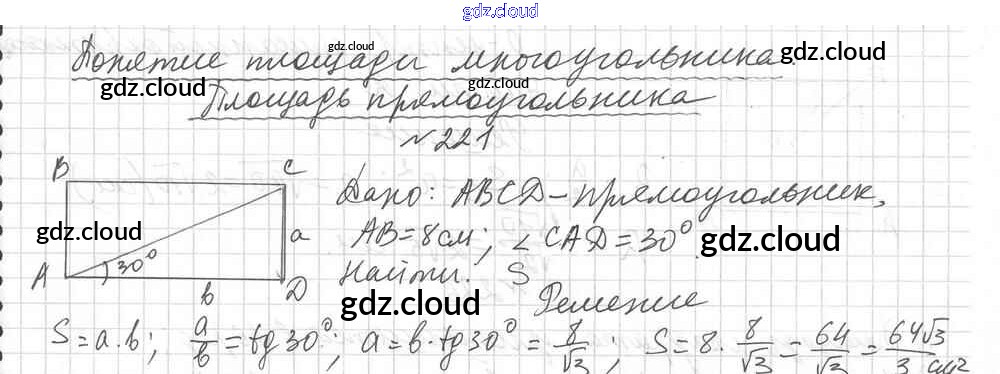 gdz.cloud
Понятие площади многоугольника
gdz.cloud
gdz.cloud
gdz.cloud
Площадь прямоугольника
gdz.cloud
№221
B C
Дано: ABCD-прямоугольник,
gdz.cloud
a
AB=8см; ∠CAD=30°
gdz.cloud
A 30° b D
Найти: S
gdz.cloud
Решение
S=a·b; a/b=tg30°; a=b·tg30°=8/√3; S=8·8/√3=64/√3=64√3/3 см²
gdz.cloud
gdz.cloud